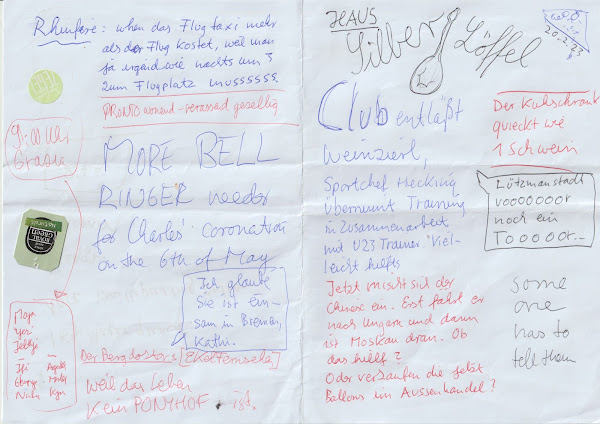 Rhinfire: wenn das Flugtaxi mehr
als der Flug kostet, weil man
ja irgendwie nachts um 3
zum Flugplatz mussssss.
PRONTO wonend-verassad gesellig
9:00 Uhr
MORE BELL
RINGER needed
for Charles' coronation
on the 6th of May
Ich glaube
Sie ist ein-
sam in Bremen,
Kathi.
Der Bergdoktors [Ekelternsela]
weil das Leben
kein PONYHOF ist.
HAUS
Silber Löffel
20.2.23
Club entläßt
Weinzierl,
Sportchef Hecking
übernimmt Training
in Zusammenarbeit
mit U23 Trainer. Viel-
leicht hilfts
Der Kühlschrank
quieckt wie
1 Schwein
Lützmanstadt
voooooooor
noch ein
Tooooor...
Jetzt mischt sich der
Chinese ein. Erst fährt er
nach Ungarn und dann
ist Moskau dran. Ob
das hilft?
Oder verkaufen die jetzt
Ballons im Aussenhandel?
some
one
has to
tell them